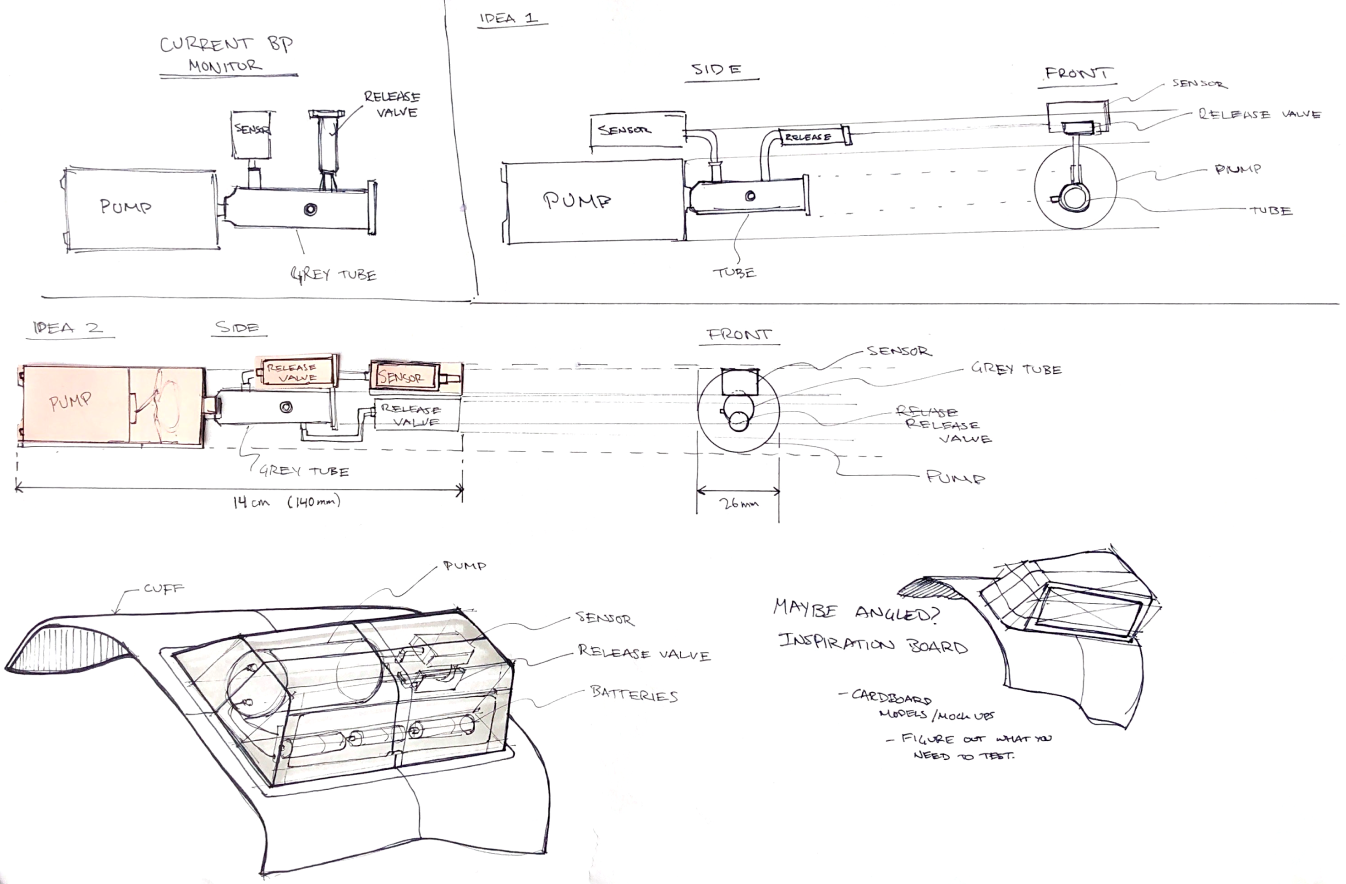 CURRENT BP
MONITOR
SENSOR
RELEASE
VALVE
PUMP
GREY TUBE
IDEA 1
SIDE
SENSOR
RELEASE
PUMP
TUBE
FRONT
SENSOR
RELEASE VALVE
PUMP
TUBE
IDEA 2
SIDE
PUMP
RELEASE
VALVE
SENSOR
RELEASE
VALVE
GREY TUBE
14 cm (140mm)
FRONT
SENSOR
GREY TUBE
RELEASE
VALVE
PUMP
26mm
CUFF
PUMP
SENSOR
RELEASE VALVE
BATTERIES
MAYBE ANGLED?
INSPIRATION BOARD
- CARDBOARD
MODELS/MOCK UPS
- FIGURE OUT WHAT YOU
NEED TO TEST.